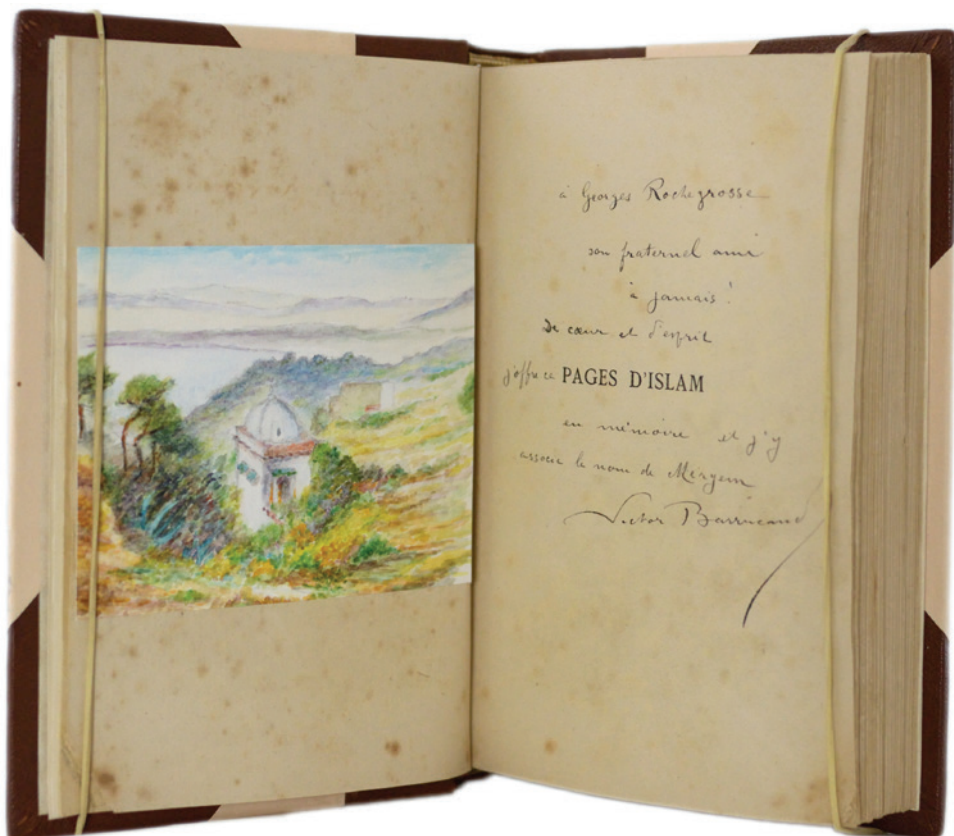 à Georges Rochegrosse
son fraternel ami
à jamais !
De cœur et d'esprit
j'offre ce PAGES D'ISLAM
en mémoire et j'y
associe le nom de Meryem
Victor Barrucand